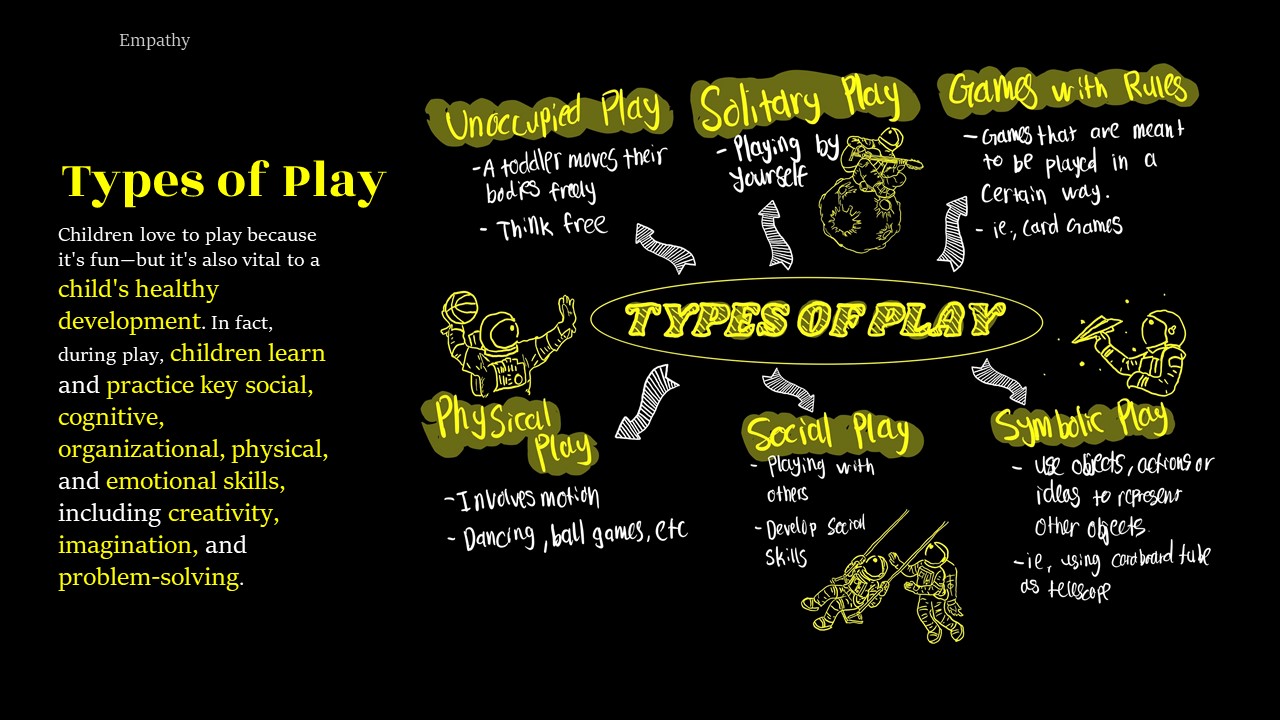 Empathy
Types of Play
Children love to play because
it's fun—but it's also vital to a
child's healthy
development. In fact,
during play, children learn
and practice key social,
cognitive,
organizational, physical,
and emotional skills,
including creativity,
imagination, and
problem-solving.
Unoccupied Play
-A toddler moves their
bodies freely
- Think free
Solitary Play
- Playing by
yourself
Games with Rules
- Games that are meant
to be played in a
certain way.
- ie., Card Games
TYPES OF PLAY
Physical
Play
- Involves motion
- Dancing, ball games, etc
Social Play
- Playing with
others
- Develop social
skills
Symbolic Play
- use objects, actions or
ideas to represent
other objects.
- ie, using cardboard tube
as telescope